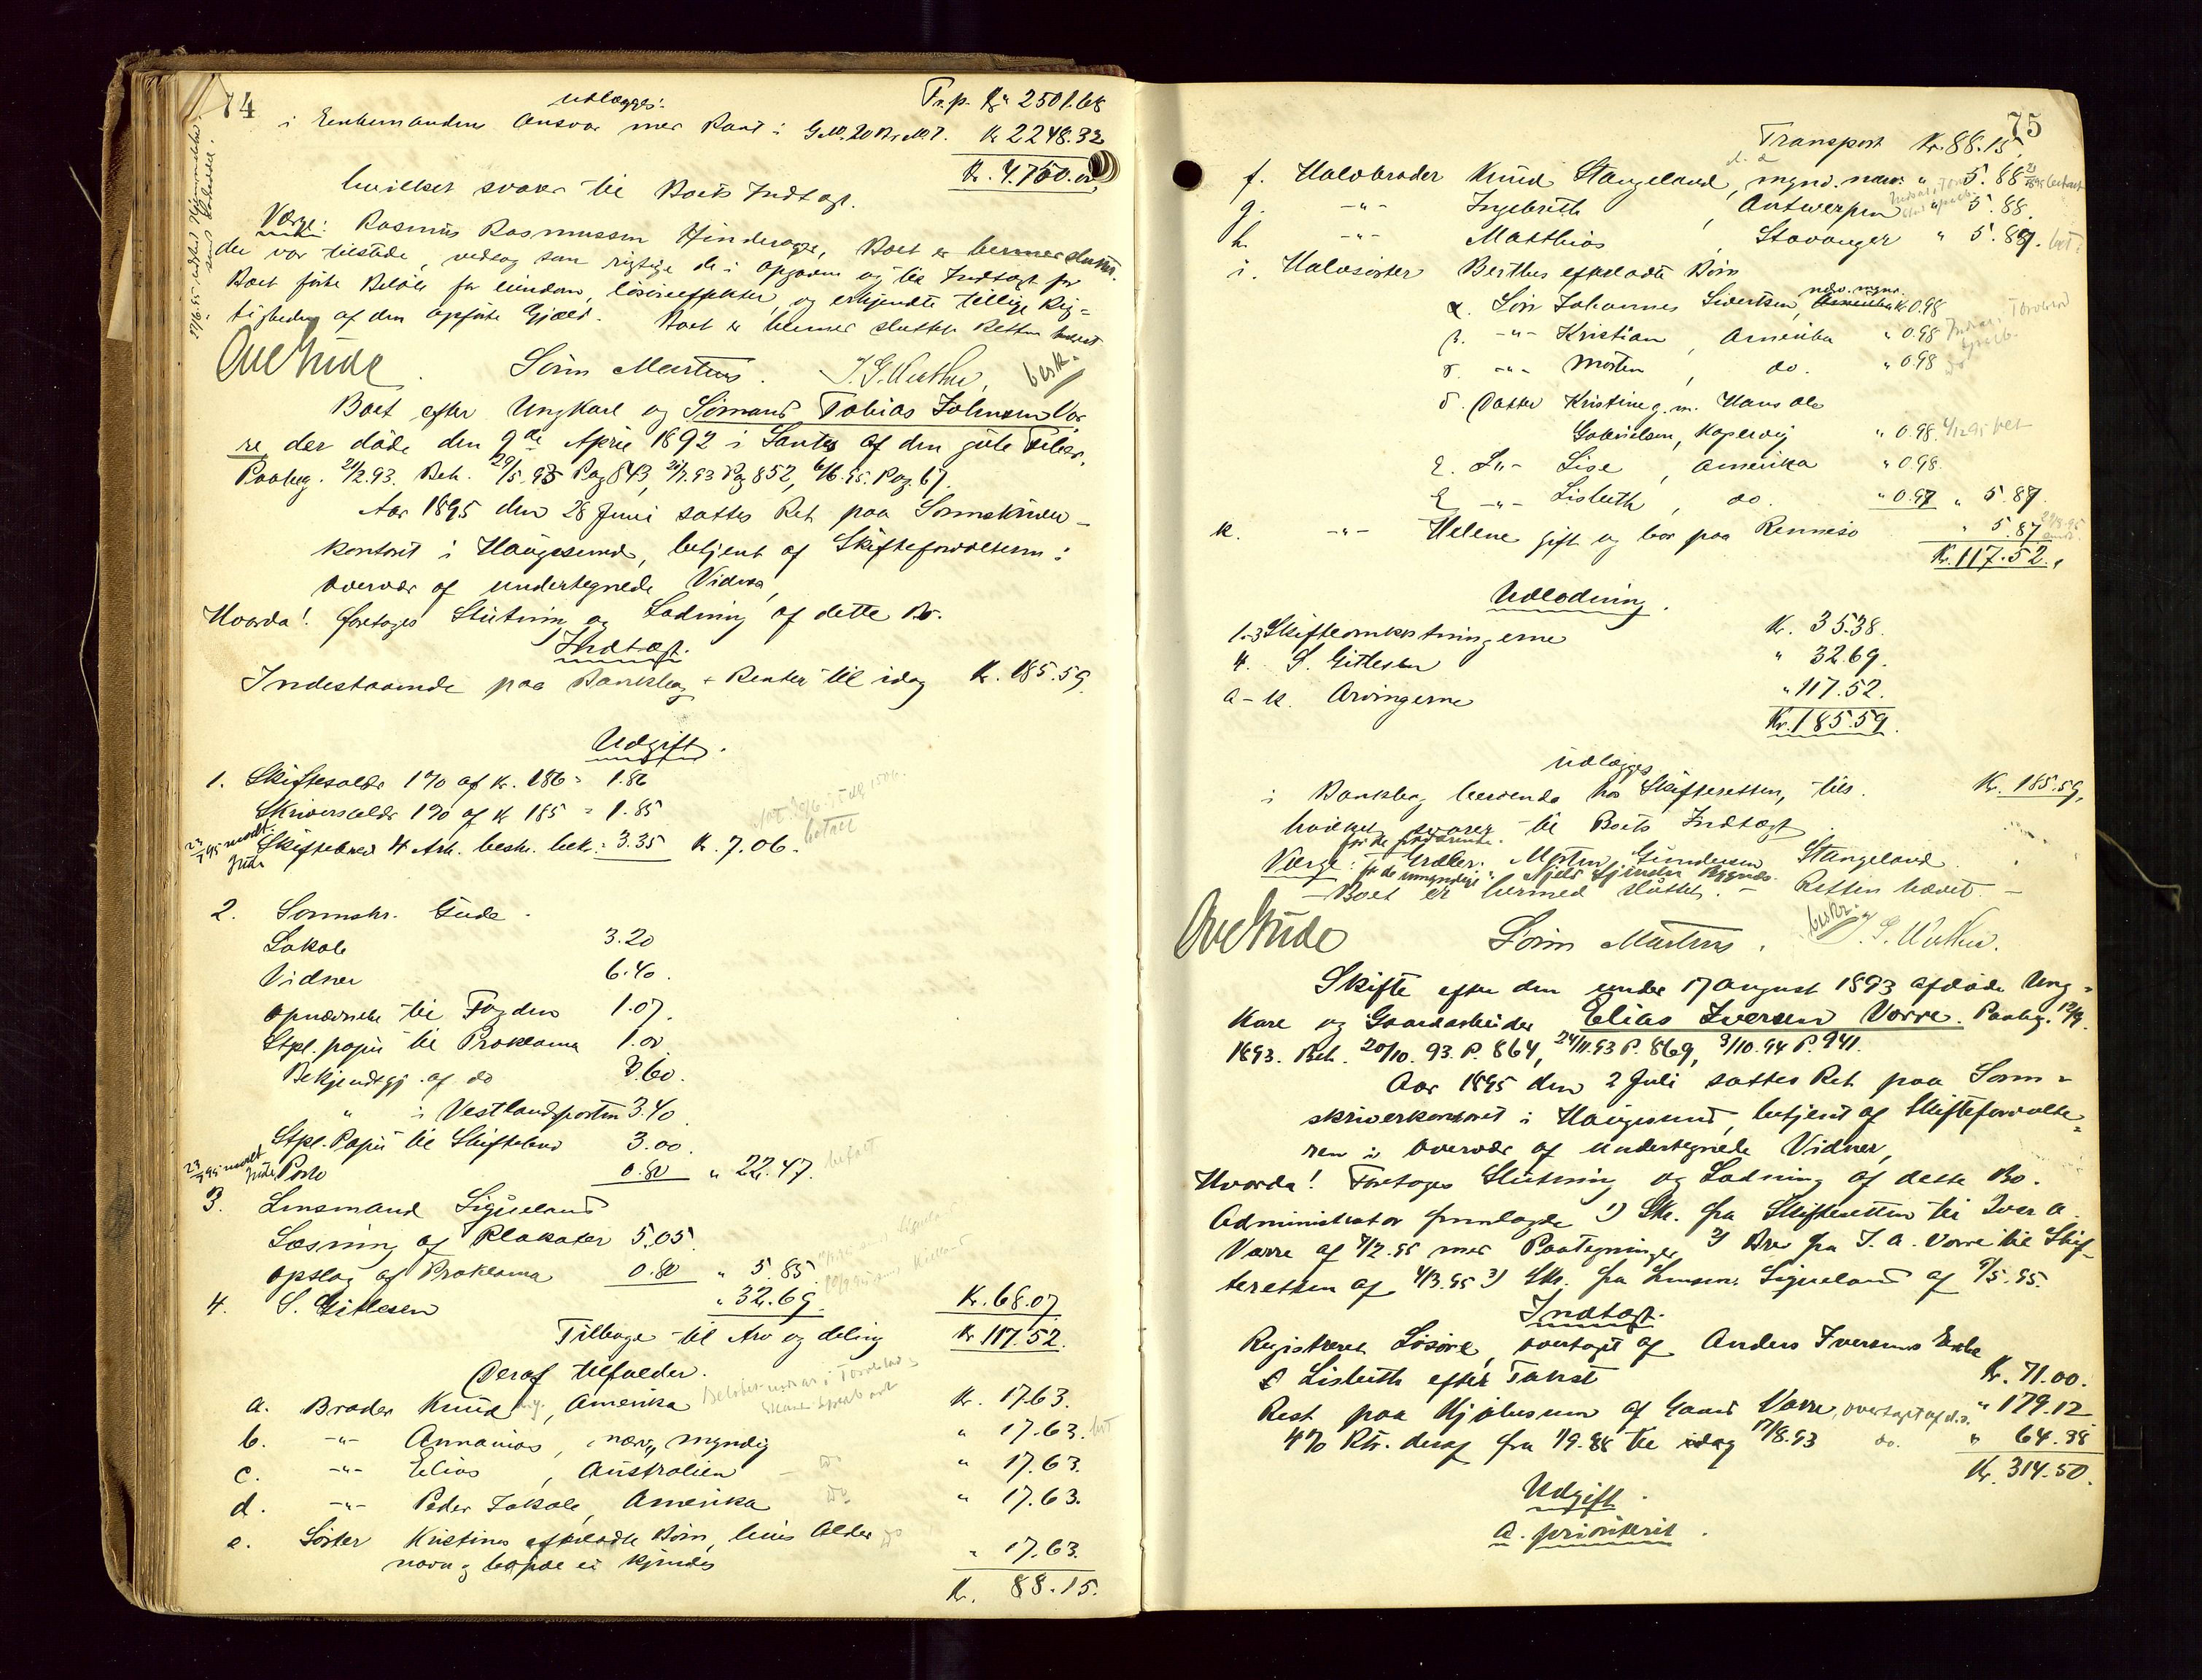 74
udlægges:
Fr. p. Kr 2501.68
i Enkemandens Ansvar med Pant i G.No. 20 Br.No 7. Kr 2248.32
Kr. 4750.00
hvilket svarer til Boets Indtægt.
Værge: Rasmus Rasmussen Hinderager,
der var tilstede, vedtog som rigtige de i Opgjøren og til Indtægt for
Boet førte Beløb for eiendom, løsøreeffekter, og erkjendte tillige Rig-
tigheden af den opførte Gjæld. Boet er hermed sluttet Retten hævet
Ove Gude. Sørin Martens. J. G. Wathne, beskr.
Boet efter Ungkarl og Sømand Tobias Johnsen Vor
re, der døde den 9de April 1892 i Santos af den gule Feber.
Paabeg. 21/2.93. Beh. 29/5.93 Pag 843, 21/7.93 Pag 852, 6/6.95. Pag. 67.
Aar 1895 den 28 Juni sattes Ret paa Sorenskriver-
kontoret i Haugesund, betjent af Skifteforvalteren i
overvær af undertegnede Vidner,
Hvorda! foretoges Slutning og Lodning af dette Bo.
Indtægt.
Indestaaende paa Bankbog + Renter til idag Kr. 185.59.
Udgift.
1. Skiftesalær 1% af Kr. 186 = 1.86
Skriversalær 1% af Kr 185 = 1.85
Skiftebrev 4 Ark. beskr. bek. = 3.35 Kr. 7.06. betalt
2. Sorenskr. Gude.
Lokale 3.20
Vidner 6.40.
opnævnelse til Fogden 1.07.
Stpl. papir til Proklama 1.00
Bekjendtgj. af do 3.60.
" i Vestlandsposten 3.40
Stpl. Papir til Skiftebrev 3.00.
Porto 0.80 " 22.47. betalt
3. Lensmand Sigveland
Læsning af Plakater 5.05
opslag af Proklama 0.80 " 5.85.
4. S. Gitlesen " 32.69. Kr. 68.07
Tilbage til Arv og deling Kr 117.52.
Deraf tilfalder.
a. Broder Knud, Amerika Kr. 17.63.
b. -"- Annanias, nærv, myndig " 17.63. bet
c. -"- Elias, Australien " 17.63.
d. -"- Peder Jakob, Amerika " 17.63.
e. Søster Kristines efterladte Børn, hvis Alder
navn og bopæl ei kjendes " 17.63.
Kr. 88.15.
75
Transport Kr. 88.15
f. Halvbroder Knud Stangeland, mynd. nærv. " 5.88
g. -"- Ingebreth, Antwerpen " 5.88.
h. -"- Matthias, Stavanger " 5.87. bet
i. Halvsøster Berthes efterladte Børn
α. Søn Johannes Sivertsen, nærv. mynd. Kr 0.98
β. -"- Kristian, Amerika " 0.98
γ. -"- Morten, do. " 0.98
δ. Datter Kristine g. m. Hans Ole
Gabrielsen, Kopervig " 0.98. bet
ε. -"- Lise, Amerika " 0.98.
-"- Lisbeth, do. " 0.97 " 5.87.
k. -"- Helene gift og bor paa Rennesø " 5.87
Kr. 117.52.
Udlodning.
1-3 Skifteomkostningerne Kr. 35.38.
4. S. Gitlesen " 32.69.
a-k. Arvingerne " 117.52.
Kr. 185.59.
udlægges
i Bankbog beroende hos Skifteretten, tils. Kr. 185.59,
hvilket svarer til Boets Indtægt
Værge: for de fraværende: Morten Gundersen Stangeland.
for de umyndige:
Boet er hermed sluttet. - Retten hævet -
Ove Gude Sørin Martens. beskr. J. G. Wathne.
Skifte efter den under 17 August 1893 afdøde Ung-
karl og Gaardarbeider Elias Iversen Vorre. Paabeg. 12/9
1893. Beh. 20/10. 93. P. 864, 24/11.93 P. 869, 3/10.94 P. 941.
Aar 1895 den 2 Juli sattes Ret paa Soren-
skriverkontoret i Haugesund, betjent af Skifteforvalte-
ren i overvær af undertegnede Vidner,
Hvorda! Foretoges Slutning og Lodning af dette Bo.
Administrator fremlagde 1) Skr. fra Skifteretten til Iver A.
Vorre af 7/2.95 med Paategninger 2) Brev fra I. A. Vorre til Skif-
teretten af 4/3.95 3) Skr. fra Lensm. Sigveland af 9/5.95.
Indtægt.
Registreret Løsøre, overtaget af Anders Iversens Enke
Lisbeth efter Takst Kr. 71.00.
Rest paa Kjøbesum af Gaard Vorre, overtaget af d.s. " 179.12
4% Rtr. deraf fra 1/9.84 til 17/8.93 do. " 64.38
Kr. 314.50.
Udgift.
a. prioriterit.